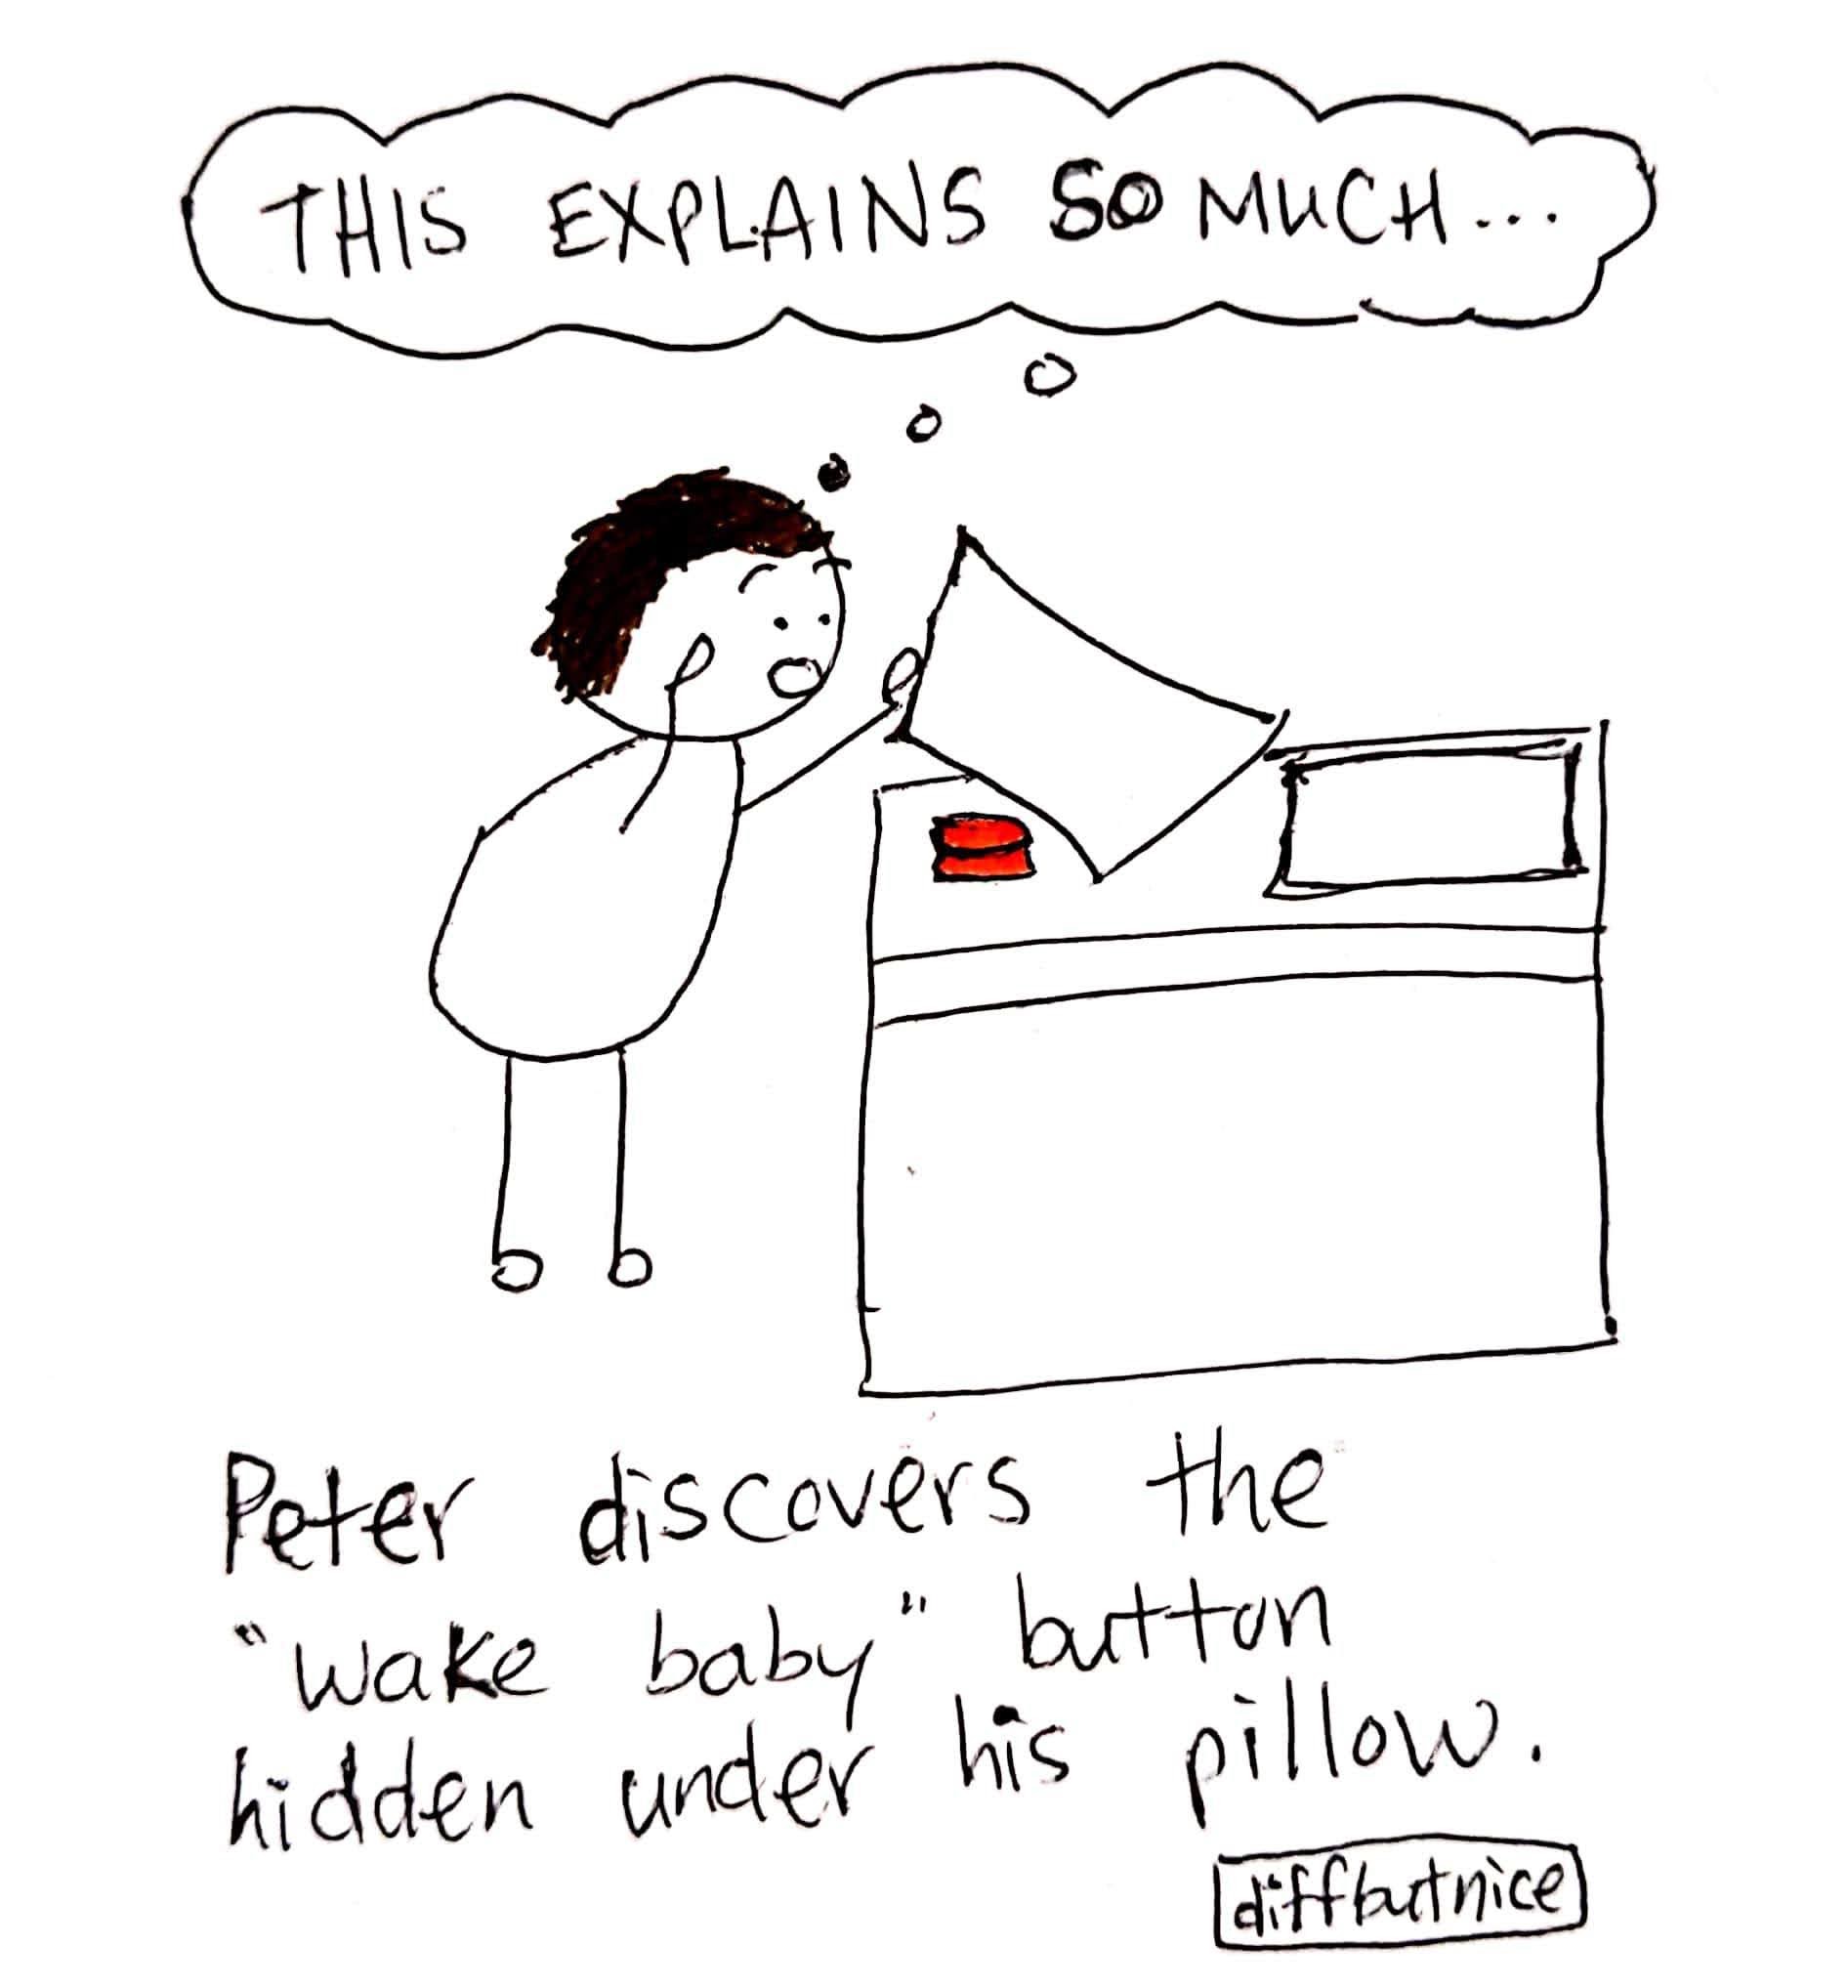 THIS EXPLAINS SO MUCH...
Peter discovers the
"wake baby" button
hidden under his pillow.
diffbutnice